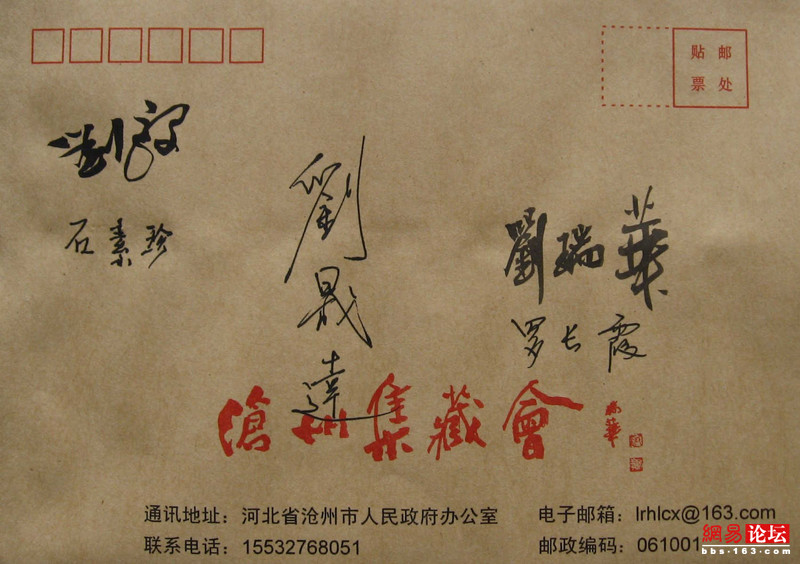 贴邮
票处
石素珍
劉晟達
劉瑞華
罗长霞
滄州集藏會
瑞華
通讯地址：河北省沧州市人民政府办公室
电子邮箱：lrhlcx@163.com
联系电话：15532768051
邮政编码：061001
網易论坛
bbs.163.com